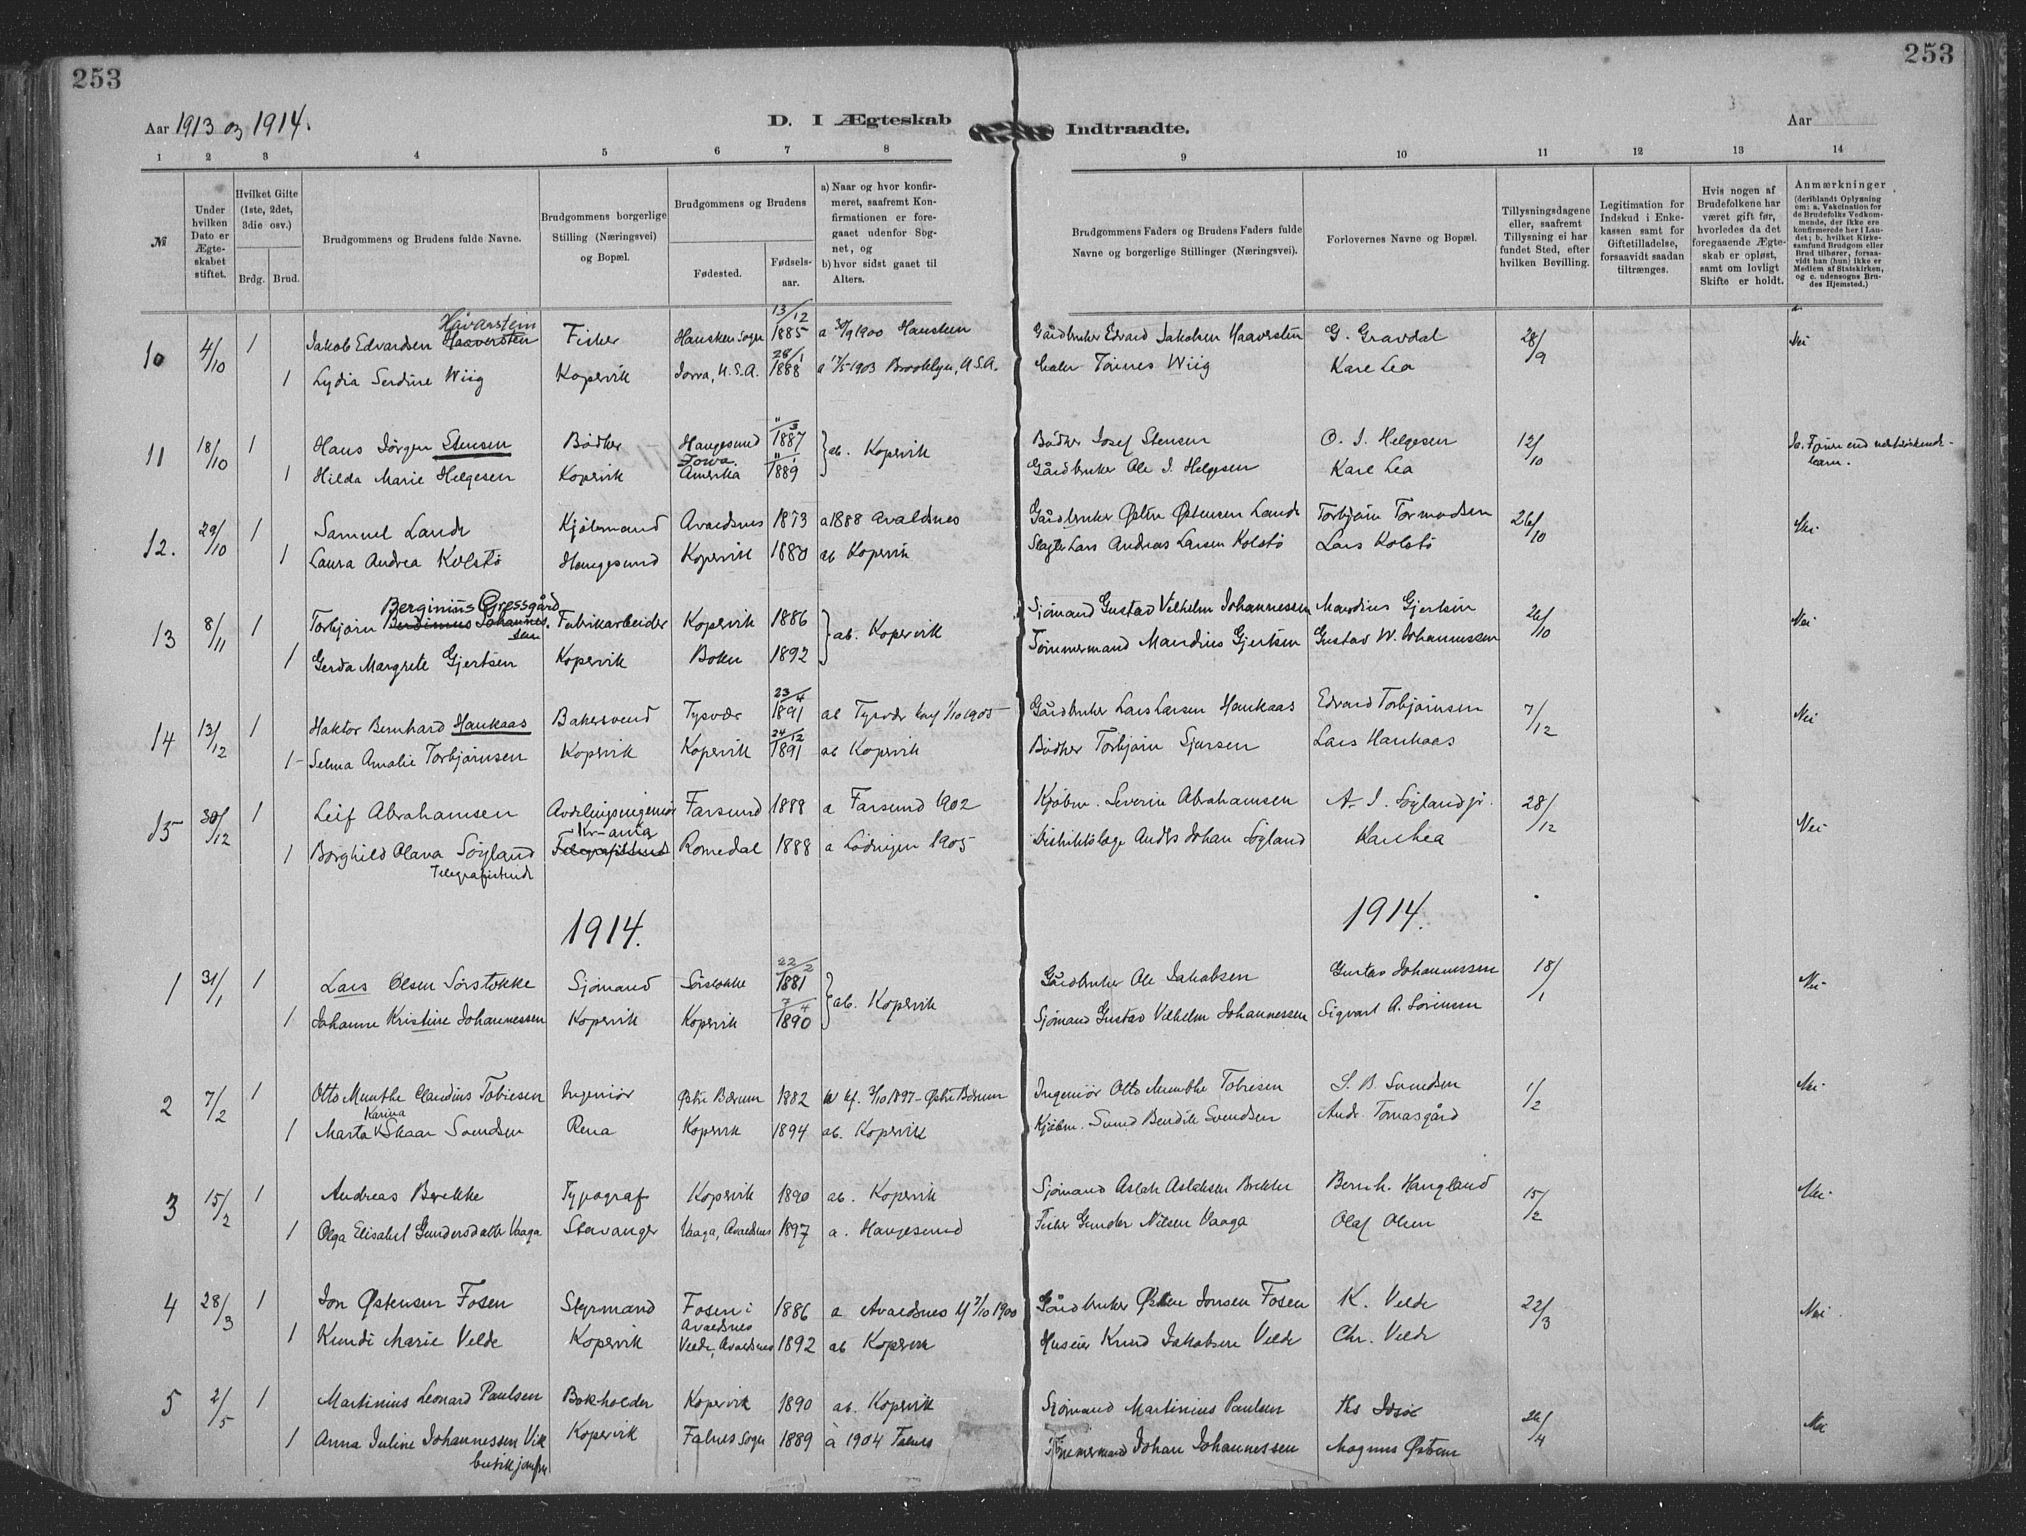 253
253
Aar 1913 og 1914.
D. I Ægteskab
Indtraadte.
Aar
1 2 3 4 5 6 7 8
9 10 11 12 13 14
№
Under hvilken Dato er Ægteskabet stiftet.
Hvilket Gifte (1ste, 2det, 3die osv.)
Brdg. Brud.
Brudgommens og Brudens fulde Navne.
Brudgommens borgerlige Stilling (Næringsvei) og Bopæl.
Brudgommens og Brudens
Fødested.
Fødselsaar.
a) Naar og hvor konfirmeret, saafremt Konfirmationen er foregaaet udenfor Sognet, og
b) hvor sidst gaaet til Alters.
Brudgommens Faders og Brudens Faders fulde Navne og borgerlige Stillinger (Næringsvei).
Forlovernes Navne og Bopæl.
Tillysningsdagene eller, saafremt Tillysning ei har fundet Sted, efter hvilken Bevilling.
Legitimation for Indskud i Enkekassen samt for Giftetilladelse, forsaavidt saadan tiltrænges.
Hvis nogen af Brudefolkene har været gift før, hvorledes da det foregaaende Ægteskab er opløst, samt om lovligt Skifte er holdt.
Anmærkninger
(deriblandt Oplysning om: a. Vakcination for de Brudefolks Vedkommende, der ikke ere konfirmerede her i Landet; b. hvilket Kirkesamfund Brudgom eller Brud tilhører, forsaavidt han (hun) ikke er Medlem af Statskirken, og c. udensogns Brudes Hjemsted.)
Håvarstein 13/12
10 4/10 1 Jakob Edvardsen Haaversten Fisker Hausken Sogn 1885 a 30/9 1900 Hausken Gårdbruker Edvard Jakobsen Haaversten G. Gravdal 28/9 Nei
28/1
1 Lydia Serdine Wiig Kopervik Iowa, U.S.A. 1888 a 17/5 1903 Brooklyn, U.S.A. Maler Tönnes Wiig Kare Lea
11 18/10 1 Hans Jørgen Stensen Bødker Haugesund 11/3 1887 ab. Kopervik Bødker Josef Stensen O. I. Helgesen 12/10
1 Hilda Marie Helgesen Kopervik Iowa. Amerika 11/1 1889 Gårdbruker Ole I. Helgesen Kare Lea
12. 29/10 1 Samuel Lande Kjøbmand Avaldsnes 1873 a 1888 Avaldsnes Gårdbruker Østen Østensen Lande Torbjørn Tormodsen 26/10 Nei
1 Laura Andrea Kolstø Haugesund Kopervik 1880 ab Kopervik Slagter Lars Andreas Larsen Kolstø Lars Kolstø
Berginius Gressgård
13 8/11 1 Torbjørn Berdinus Johannessen Fabrikarbeider Kopervik 1886 ab. Kopervik Sjømand Gustav Vilhelm Johannessen Mandius Gjertsen 26/10 Nei
1 Gerda Margrete Gjertsen Kopervik Bokn 1892 Tømmermand Mandius Gjertsen Gustav W. Johannessen
23/4
14 13/12 1 Haktor Bernhard Haukaas Bakersvend Tysvær 1891 ab Tysvær konf 1/10 1905 Gårdbruker Lars Larsen Haukaas Edvard Torbjørnsen 7/12 Nei
24/12
1 Selma Amalie Torbjørnsen Kopervik Kopervik 1891 ab Kopervik Bødker Torbjørn Sjursen Lars Haukaas
15 30/12 1 Leif Abrahamsen Avdelingsingeniør Farsund 1888 a Farsund 1902 Kjøbm. Severin Abrahamsen A. I. Søyland jr. 28/12 Nei
Kr-ania
1 Borghild Olava Søyland Telegrafistinde Romedal 1888 a Lødingen 1905 Distriktslæge Anders Johan Søyland Kare Lea
Telegrafistinde
1914.
1914.
22/2
1 31/1 1 Lars Olsen Sørstokke Sjömand Sørstokke 1881 ab. Kopervik Gårdbruker Ole Jakobsen Gustav Johannessen 18/1 Nei
7/4
1 Johanne Kristine Johannessen Kopervik Kopervik 1890 Sjømand Gustav Vilhelm Johannessen Sigvart A. Sørensen
2 7/2 1 Otto Munthe Claudius Tobiesen Ingeniør Østre Bærum 1882 kf. 3/10 1897 - Østre Bærum Ingeniör Otto Munthe Tobiesen S. B. Svendsen 1/2 Nei
Karina
1 Marta Skaar Svendsen Rena Kopervik 1894 ab. Kopervik Kjøbm. Svend Bendik Svendsen Andr. Tomasgård
3 15/2 1 Andreas Brekke Typograf Kopervik 1890 ab. Kopervik Sjömand Aslak Aslaksen Brekke Bernh. Haugland 15/2 Nei
1 Olga Elisabet Gundersdatter Vaaga Stavanger Vaaga, Avaldsnes 1897 a. Haugesund Fisker Gunder Nilsen Vaaga Olaf Olsen
4 28/3 1 Jon Østensen Fosen Styrmand Fosen i Avaldsnes 1886 a Avaldsnes kf 7/10 1900 Gårdbruker Østen Jonsen Fosen K. Velde 22/3 Nei
1 Kundi Marie Velde Kopervik Velde, Avaldsnes 1892 ab Kopervik Huseier Knud Jakobsen Velde Chr. Velde
5 2/5 1 Martinius Leonard Paulsen Bokholder Kopervik 1890 ab. Kopervik Sjømand Martinius Paulsen 26/4 Nei
1 Anna Juline Johannessen Vik Kopervik Falnes Sogn 1889 a 1904 Falnes Tømmermand Johan Johannessen Magnus Østrem
butikjomfru